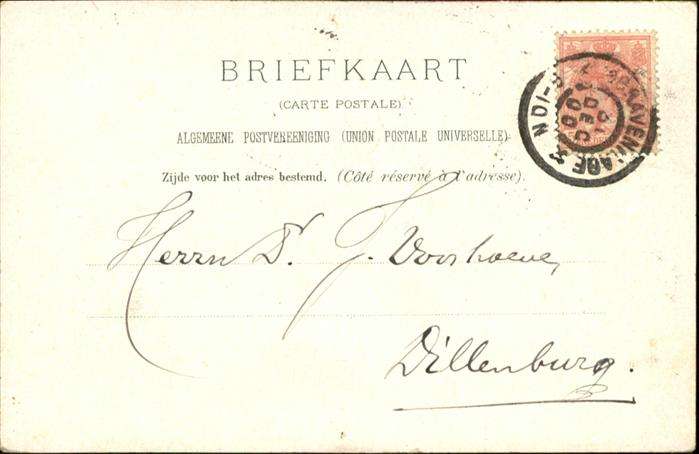 BRIEFKAART
(CARTE POSTALE)
ALGEMEENE POSTVEREENIGING (UNION POSTALE UNIVERSELLE)
Zijde voor het adres bestemd. (Côté réservé à l'adresse).
'SGRAVENHAGE
DEC
Herrn Dr. J. Voorhoeve,
Dillenburg.